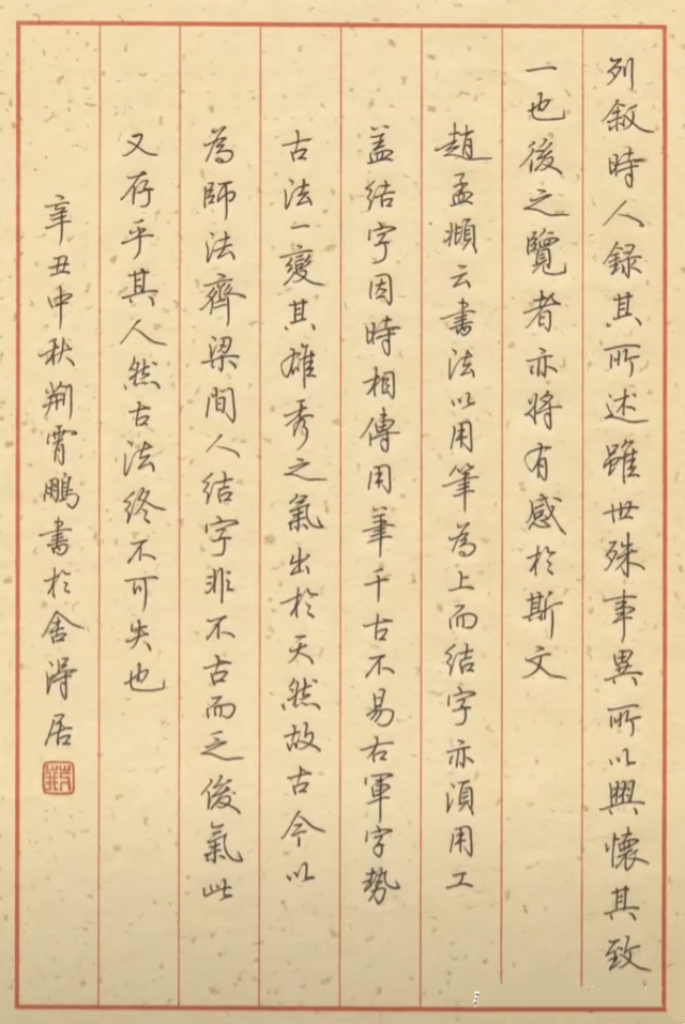 列叙時人録其所述雖世殊事異所以興懷其致
一也後之覽者亦將有感於斯文
趙孟頫云書法以用筆為上而結字亦須用工
盖結字因時相傳用筆千古不易右軍字勢
古法一變其雄秀之氣出於天然故古今以
為師法齊梁間人結字非不古而乏俊氣此
又存乎其人然古法終不可失也
辛丑中秋荆霄鵬書於舍得居